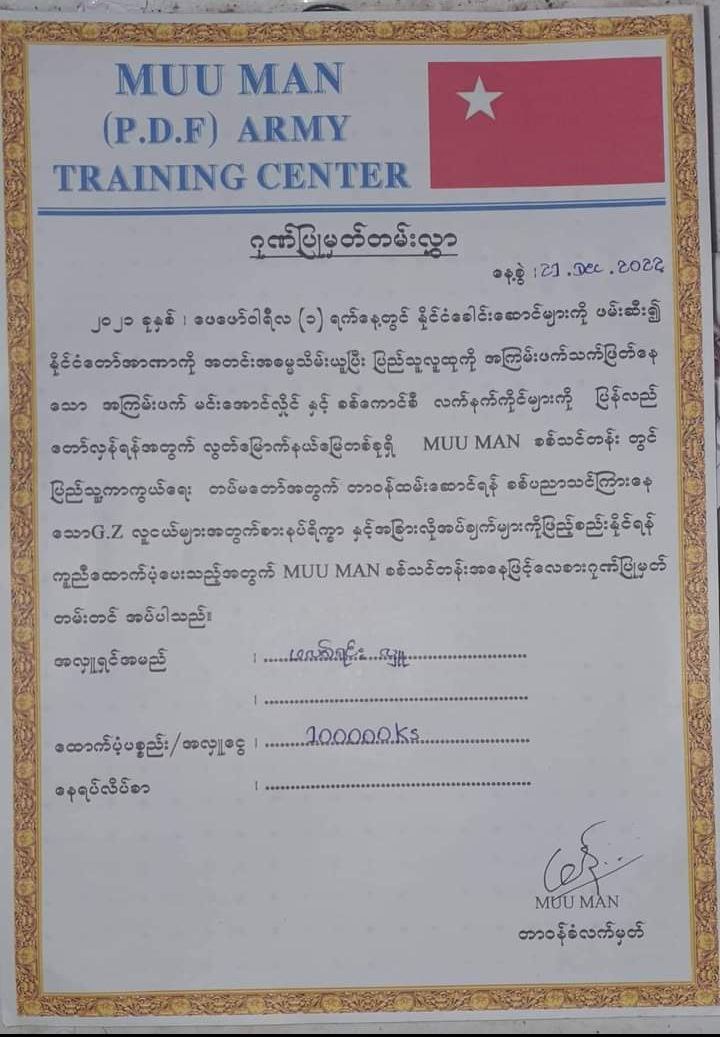 MUU MAN
(P.D.F) ARMY
TRAINING CENTER
ဂုဏ်ပြုမှတ်တမ်းလွှာ
နေ့စွဲ ၊ 21 . Dec . 2022
၂၀၂၁ ခုနှစ် ၊ ဖေဖော်ဝါရီလ (၁) ရက်နေ့တွင် နိုင်ငံ့ခေါင်းဆောင်များကို ဖမ်းဆီး၍
နိုင်ငံတော်အာဏာကို အတင်းအဓမ္မသိမ်းယူပြီး ပြည်သူလူထုကို အကြမ်းဖက်သတ်ဖြတ်နေ
သော အကြမ်းဖက် မင်းအောင်လှိုင် နှင့် စစ်ကောင်စီ လက်နက်ကိုင်များကို ပြန်လည်
တော်လှန်ရန်အတွက် လွတ်မြောက်နယ်မြေတစ်ခုရှိ MUU MAN စစ်သင်တန်း တွင်
ပြည်သူ့ကာကွယ်ရေး တပ်မတော်အတွက် တာဝန်ထမ်းဆောင်ရန် စစ်ပညာသင်ကြားနေ
သောG.Z လူငယ်များအတွက်စားနပ်ရိက္ခာ နှင့်အခြားလိုအပ်ချက်များကိုဖြည့်စည်းနိုင်ရန်
ကူညီထောက်ပံ့ပေးသည့်အတွက် MUU MAN စစ်သင်တန်းအနေဖြင့်လေစားဂုဏ်ပြုမှတ်
တမ်းတင် အပ်ပါသည်။
အလှူရှင်အမည် ၊
၊
ထောက်ပံ့ပစ္စည်း/အလှူငွေ ၊ 100000Ks
နေရပ်လိပ်စာ ၊
MUU MAN
တာဝန်ခံလက်မှတ်